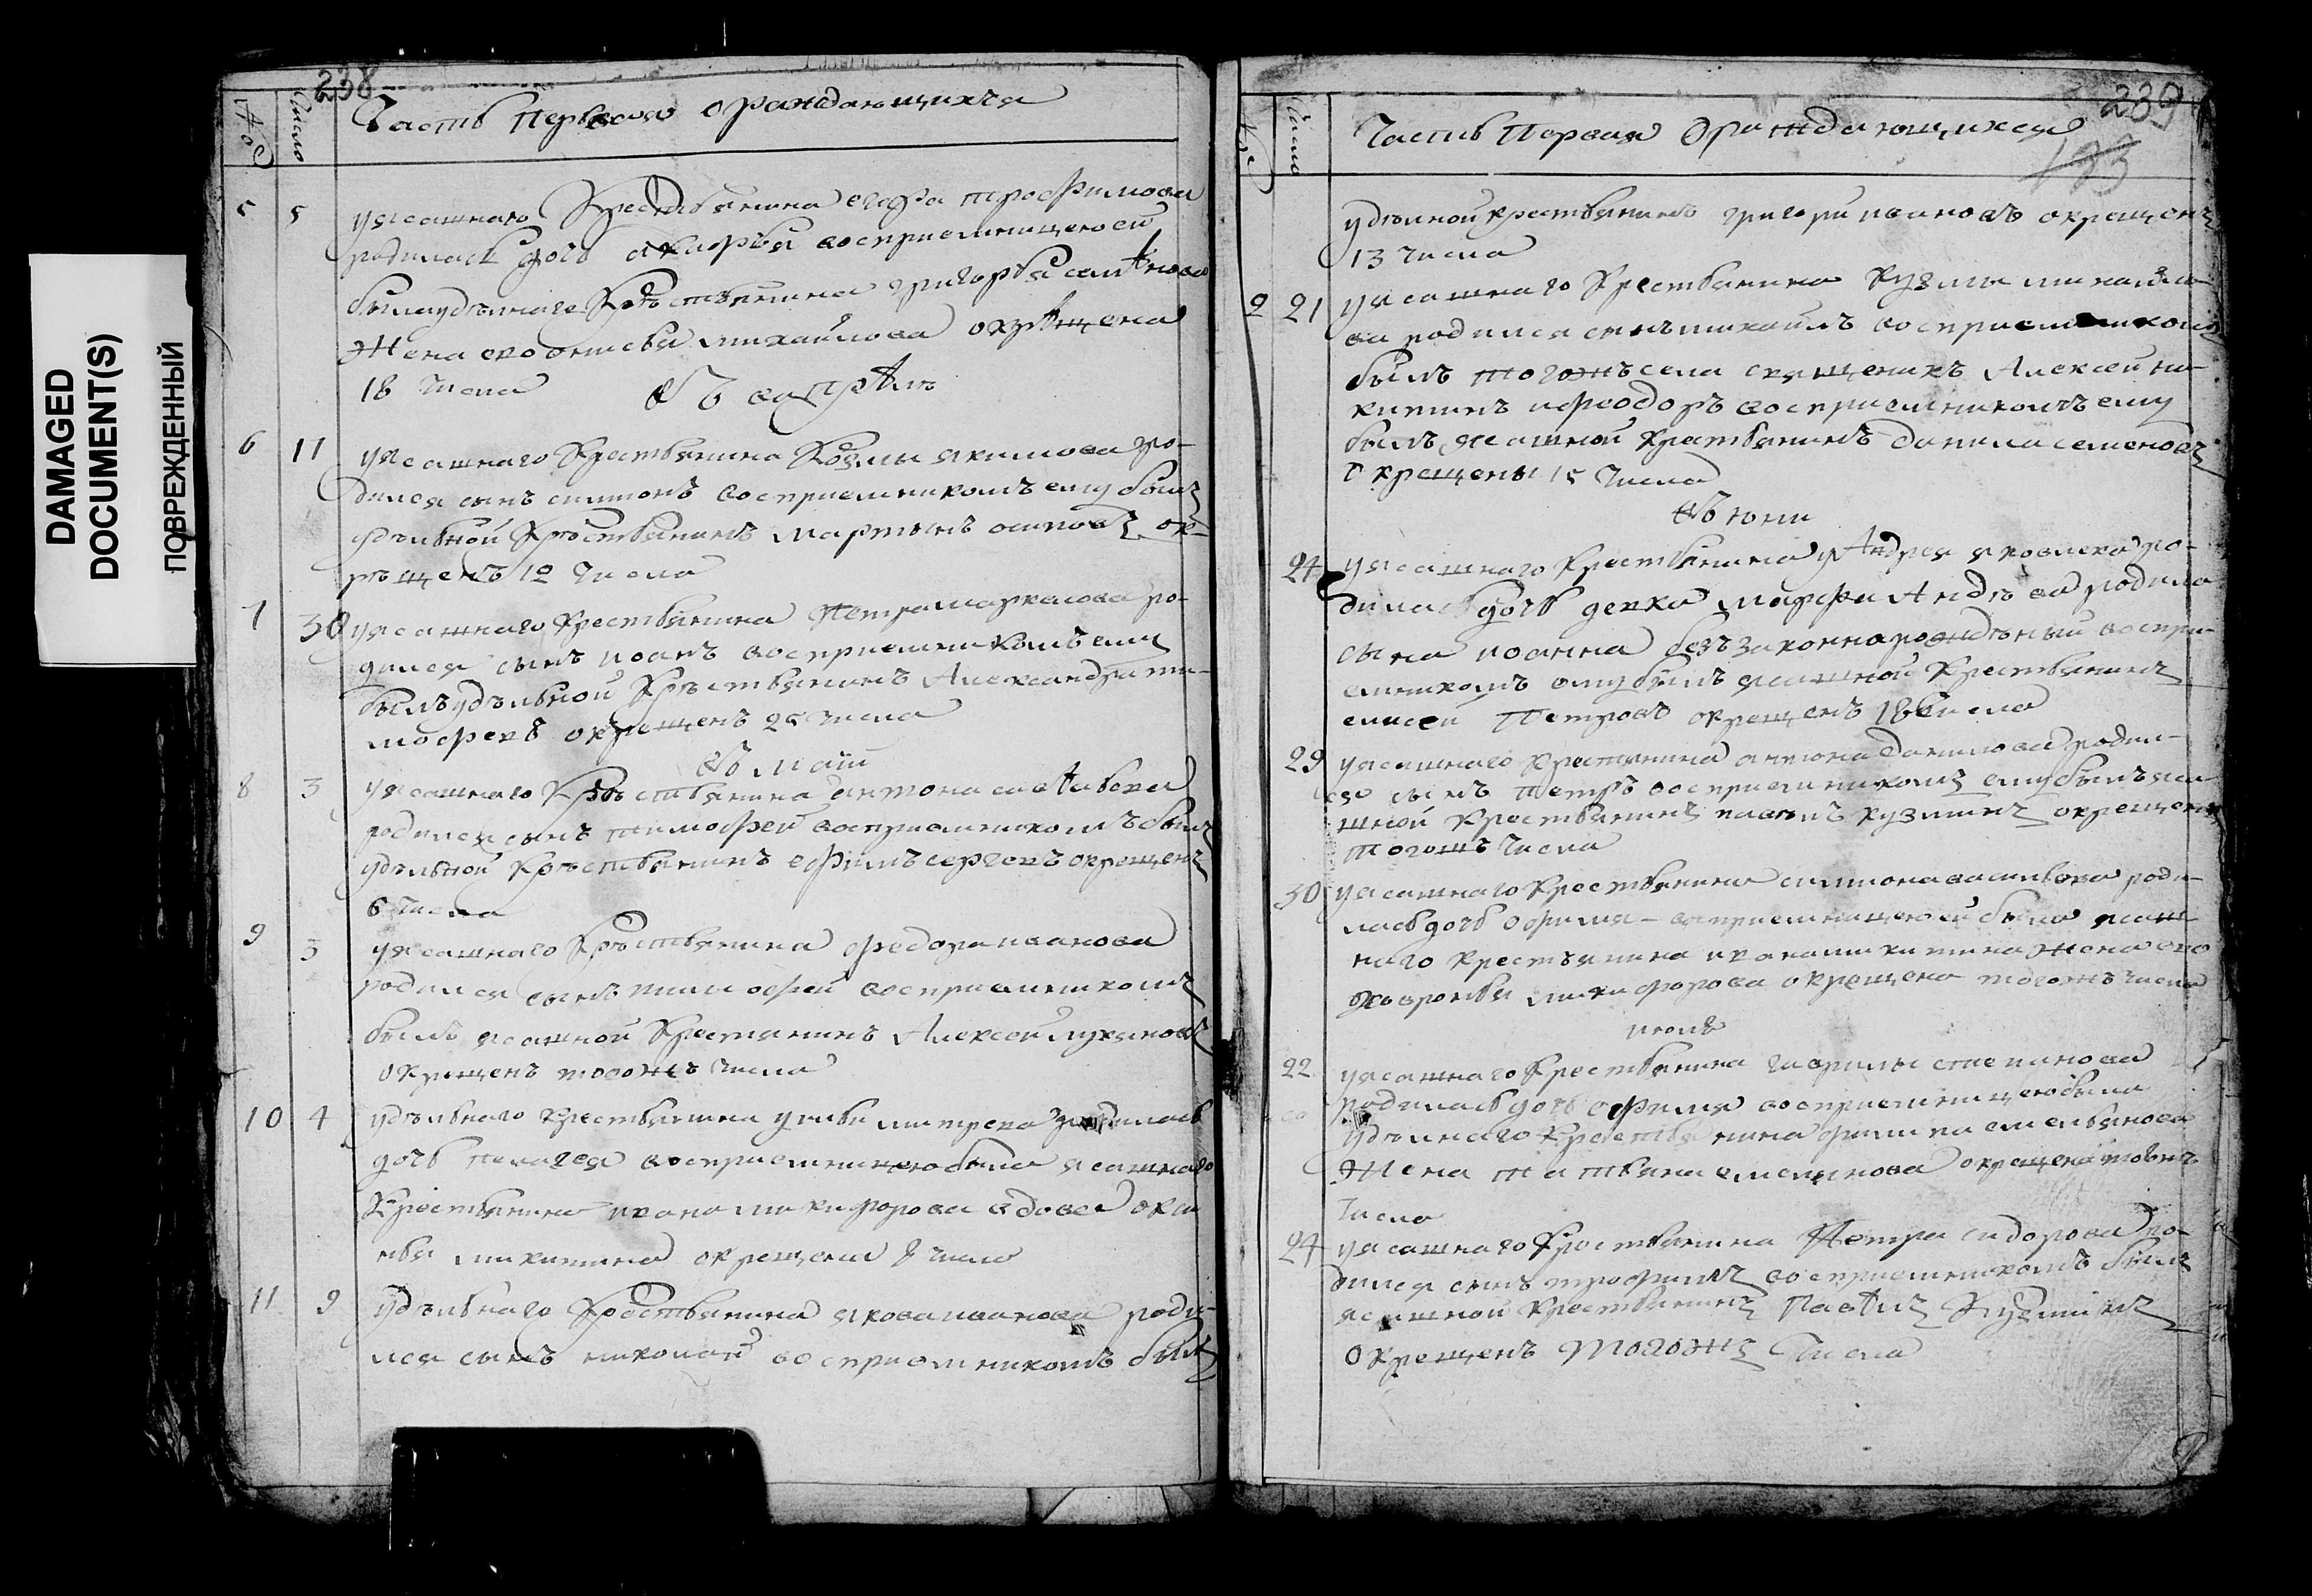 DAMAGED
DOCUMENT(S)
ПОВРЕЖДЕННЫЙ
238
Число
Часть Первая о раждающихся
5 5 уясашнаго Крестьянина трофимова
родилась дочь восприемницею ей
была удѣлнаго Крѣстьянина григорья
Жена его михаилова окрѣщена
18 числа Въ апрѣлѣ
6 11 уясашнаго Крестьянина Козмы якимова ро-
дился сынъ симионъ восприемникомъ ему былъ
удѣльной Крѣстьянинъ мартынъ осиповъ ок-
рѣщенъ 12 числа
7 30 уясашнаго Крестьянина Петра ро-
дился сынъ иоанъ восприемникомъ ему
былъ удѣльной Крѣстьянинъ Александра ти-
мофеевъ окрещенъ 25 числа
Въ маiи
8 3 уясашнаго Крѣстьянина антона савѣльева
родился сынъ тимофей восприемникомъ былъ
удѣльной Крѣстьянинъ ефимъ сергеевъ окрещенъ
6 числа
9 3 уясашнаго Крѣстьянина федора иванова
родился сынъ тимофей восприемникомъ
былъ ясашной Крестянинъ Алексей лукяновъ
окрещенъ тогожъ числа
10 4 удѣльнаго крестьянина родилась
дочь пелагея восприемницею была ясашнаго
Крестьянина ивана никифорова вдова
никитина окрещена 8 числа
11 9 Удѣльнаго Крѣстьянина якова иванова роди-
лся сынъ николай восприемникомъ былъ
239
133
Число
Часть Первая О раждающихся
удѣлной крестьянинъ григори ивановъ окрещенъ
13 числа
2 21 уясашнаго Крестьянина Кузмы михайло-
ва родился сынъ михаилъ восприемникомъ
былъ тогожъ села священикъ Алексей ни-
китинъ ифеодоръ восприемникомъ ему
былъ ясашной Крестьянинъ данила семеновъ
Окрещены 15 числа
Въ юни
24 уясашнаго Крестьянина Андрея яковлева ро-
дилась дочь девка марфа родила
сына иоанна безъзаконнарожденный воспри-
емникомъ ему былъ ясашной Крестьянинъ
елисей Петровъ окрещенъ 18 числа
29 уясашнаго крестянина данилова родил-
ся сынъ петръ восприемникомъ ему былъ яса-
шной Крестьянинъ павелъ кузминъ окрещенъ
тогожъ числа
30 уясашнаго Крестьянина симиона васильева роди-
лась дочь офимя - восприемницею ей была ясаш-
наго Крестьянина ивана никитина жена его
никифорова окрещена тогожъ числа
июль
22 уясашнаго Крестьянина гаврилы степанова
родилась дочь офимя восприемницею была
Удѣлнаго Крестьянина филипа емельянова
Жена татьяна емелянова окрещена товожъ
числа
24 уясашнаго Крестьянина Петра сидорова ро-
дился сынъ трофимъ восприемникомъ былъ
ясашной Крестьянинъ Павѣлъ Кузминъ
Окрещенъ тогожъ Числа